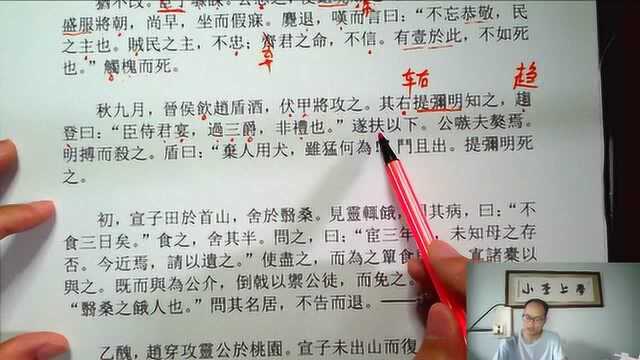 猶不改。宣子驟諫。公患之，使鉏麑賊之。
盛服將朝，尚早，坐而假寐。麑退，嘆而言曰：“不忘恭敬，民
之主也。賊民之主，不忠；棄君之命，不信。有壹於此，不如死
也。”觸槐而死。
车右 趋
秋九月，晉侯飲趙盾酒，伏甲將攻之。其右提彌明知之，趨
登曰：“臣侍君宴，過三爵，非禮也。”遂扶以下。公嗾夫獒焉。
明搏而殺之。盾曰：“棄人用犬，雖猛何為！”鬥且出。提彌明死
之。
初，宣子田於首山，舍於翳桑。見靈輒餓，問其病，曰：“不
食三日矣。”食之，舍其半。問之，曰：“宦三年
，未知母之存
否。今近焉，請以遺之。”使盡之，而為之簞食
，寘諸橐以
與之。既而與為公介，倒戟以禦公徒，而免之。
“翳桑之餓人也。”問其名居，不告而退。——
乙醜，趙穿攻靈公於桃園。宣子未出山而復
小李上學